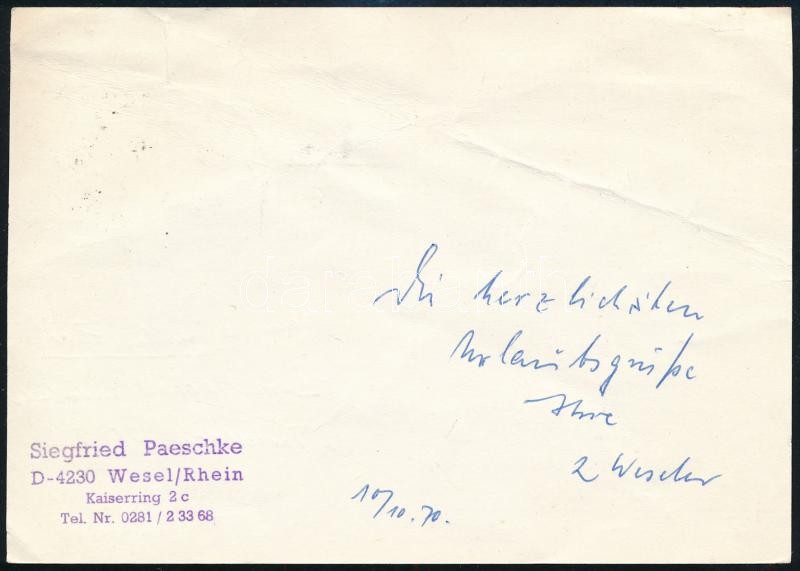 Die herzlichsten
Urlaubsgrüße
Ihre
2 Weseler
10/10.70.
Siegfried Paeschke
D-4230 Wesel/Rhein
Kaiserring 2 c
Tel. Nr. 0281 / 2 33 68